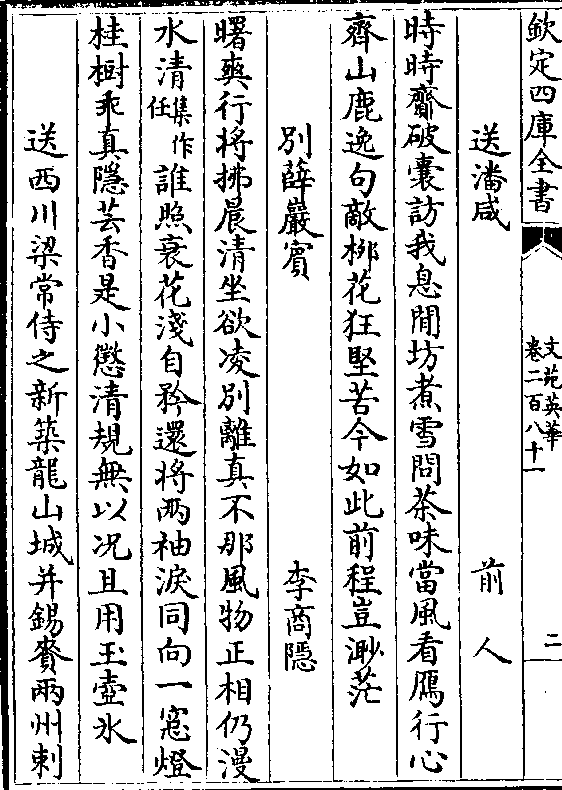 欽定四庫全書
文苑英華
卷二百八十一
二
送潘咸 前人
時時齋破囊訪我息閒坊煮雪問茶味當風看鴈行心
齊山鹿逸句敵栁花狂堅苦今如此前程豈渺茫
别薛巖賓 李商隱
曙爽行將拂晨清坐欲凌別離真不那風物正相仍漫
水清集作任誰照衰花淺自矜還將兩袖淚同向一窓燈
桂樹乖真隱芸香是小懲清規無以况且用玉壺氷
送西川梁常侍之新築龍山城并錫賚兩州刺